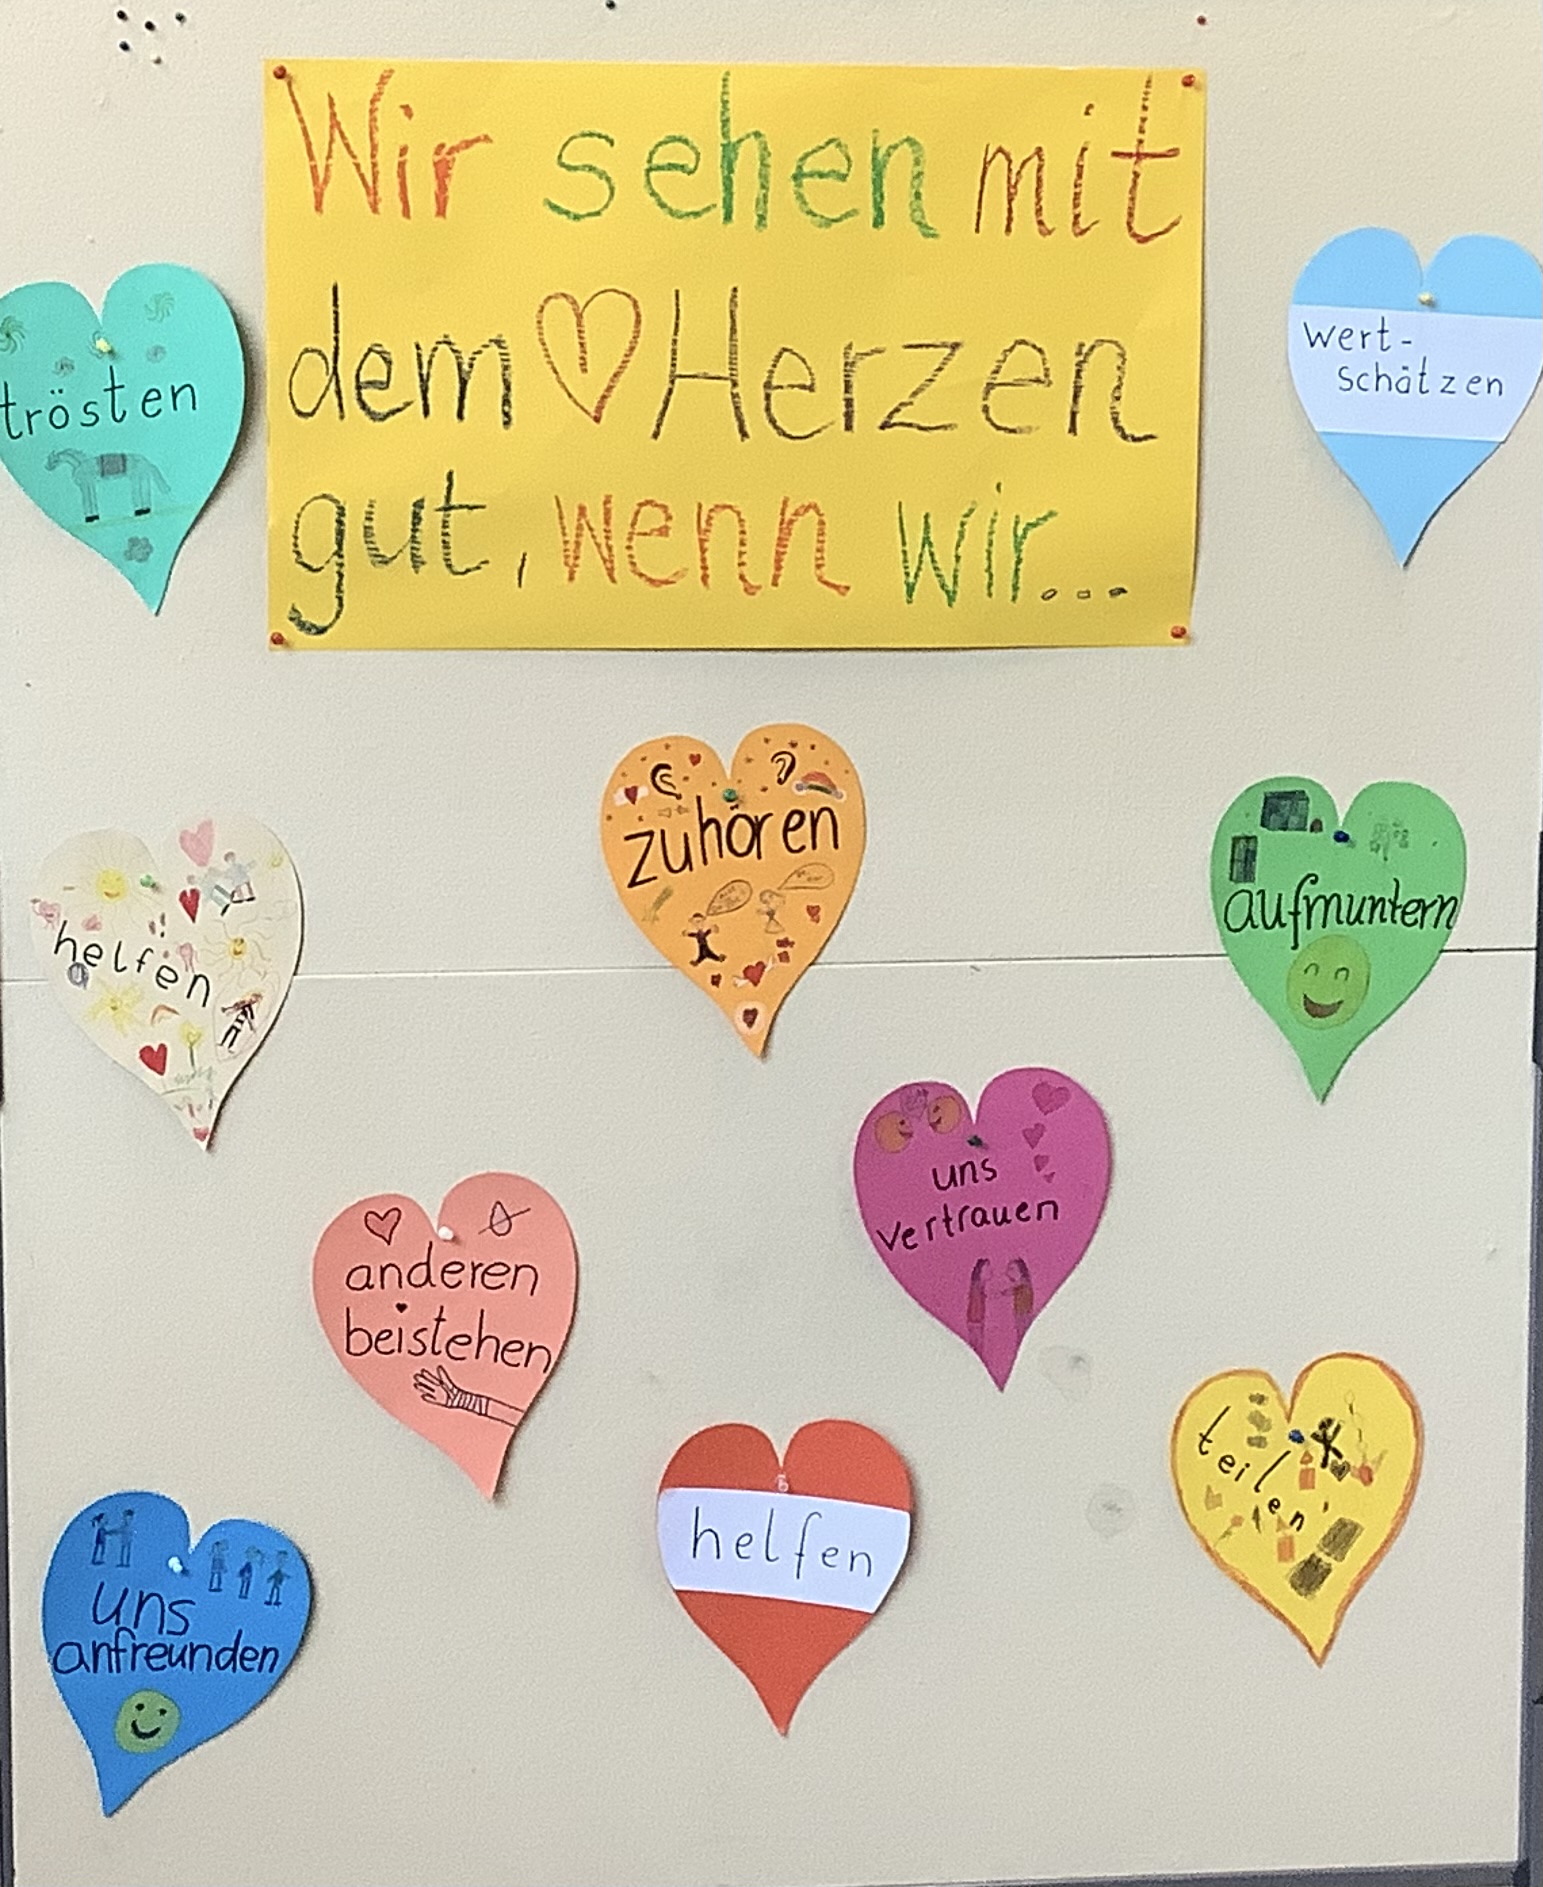 Wir sehen mit
dem Herzen
gut, wenn wir...
trösten
wert-
schätzen
zuhören
helfen
aufmuntern
uns
vertrauen
anderen
beistehen
teilen
helfen
uns
anfreunden